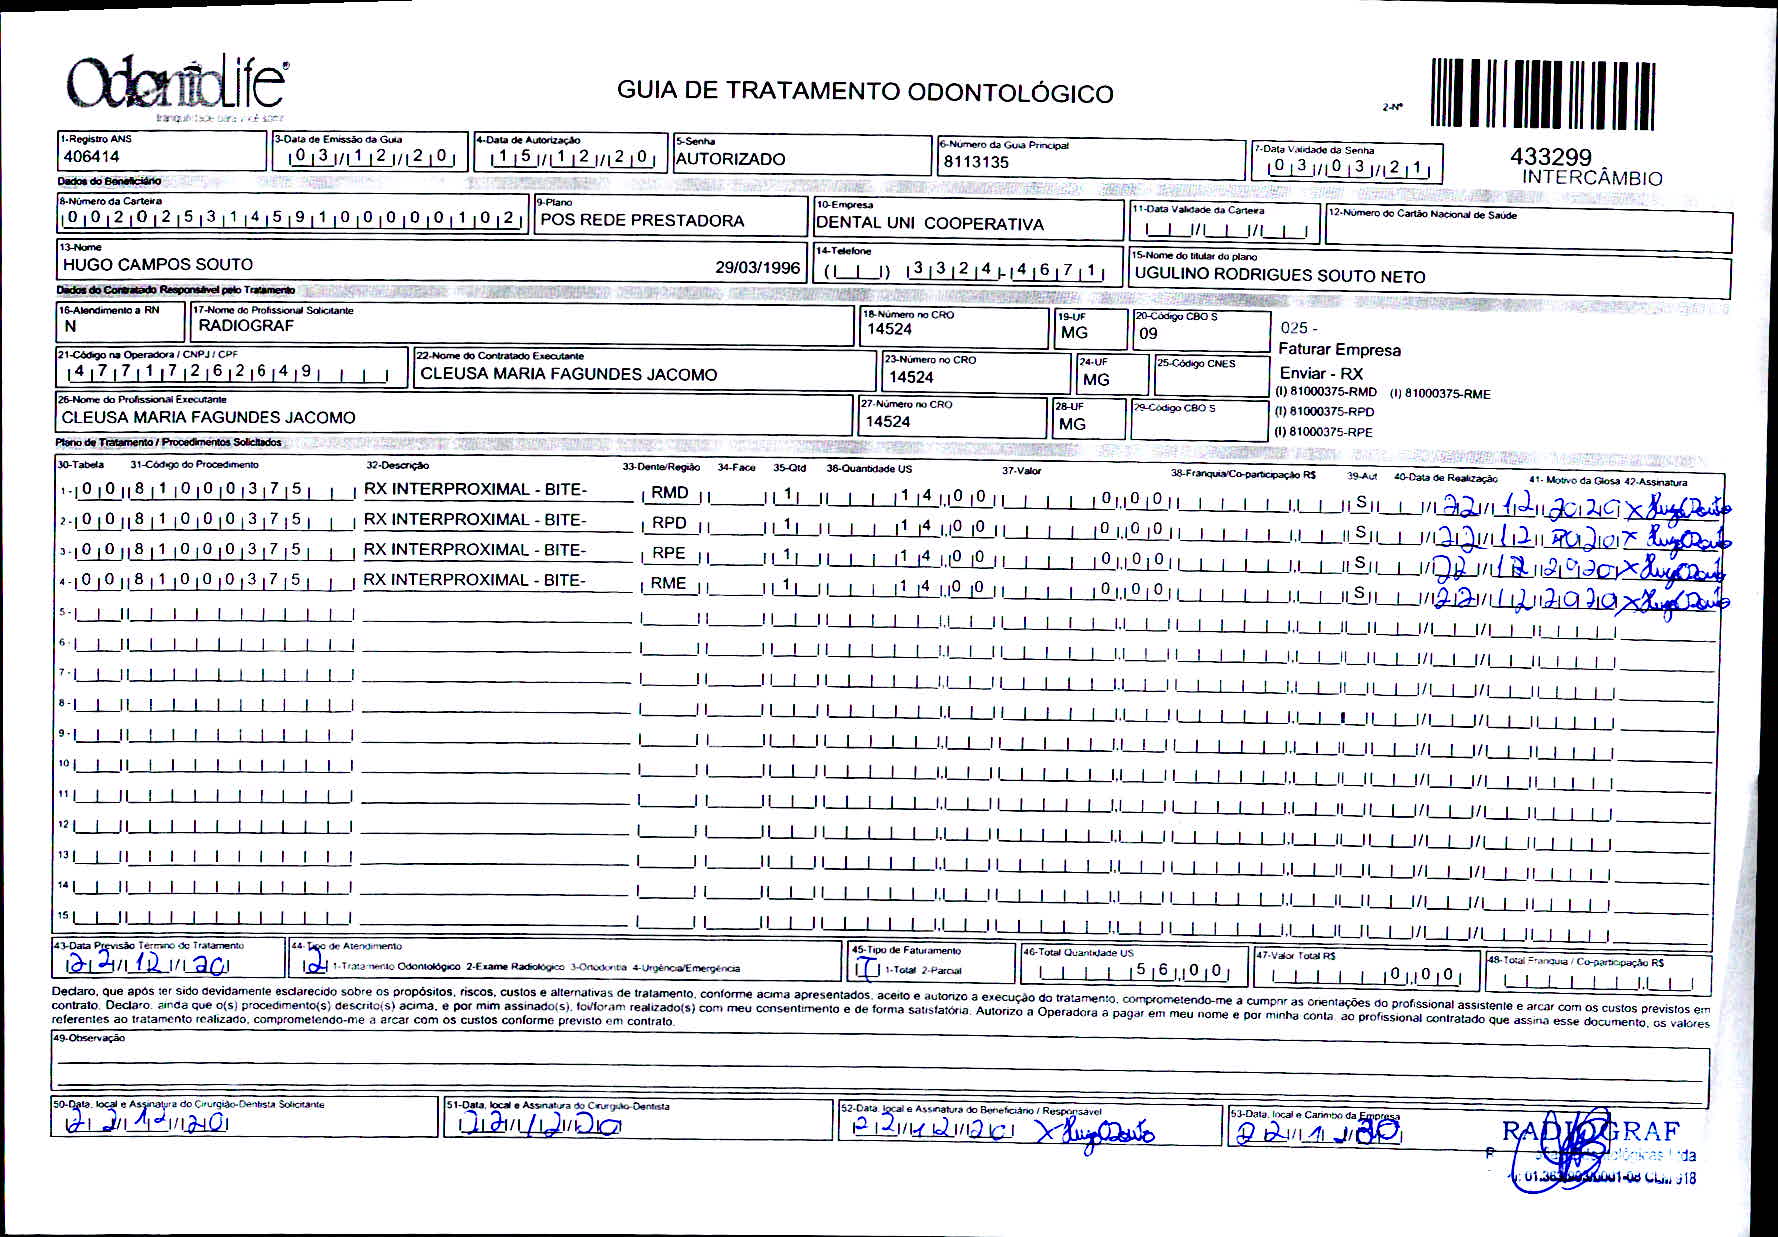 OdontoLife
tranquilidade para você sorrir
GUIA DE TRATAMENTO ODONTOLÓGICO
2-Nº
433299
INTERCÂMBIO
1-Registro ANS
406414
3-Data de Emissão da Guia
03/12/20
4-Data de Autorização
15/12/20
5-Senha
AUTORIZADO
6-Número da Guia Principal
8113135
7-Data Validade da Senha
03/03/21
Dados do Beneficiário
8-Número da Carteira
00202531459100000102
9-Plano
POS REDE PRESTADORA
10-Empresa
DENTAL UNI COOPERATIVA
11-Data Validade da Carteira
12-Número do Cartão Nacional de Saúde
13-Nome
HUGO CAMPOS SOUTO 29/03/1996
14-Telefone
( ) 3324-4671
15-Nome do titular do plano
UGULINO RODRIGUES SOUTO NETO
Dados do Contratado Responsável pelo Tratamento
16-Atendimento a RN
N
17-Nome do Profissional Solicitante
RADIOGRAF
18-Número no CRO
14524
19-UF
MG
20-Código CBO S
09
025 -
Faturar Empresa
Enviar - RX
(I) 81000375-RMD (I) 81000375-RME
(I) 81000375-RPD
(I) 81000375-RPE
21-Código na Operadora / CNPJ / CPF
47717262649
22-Nome do Contratado Executante
CLEUSA MARIA FAGUNDES JACOMO
23-Número no CRO
14524
24-UF
MG
25-Código CNES
26-Nome do Profissional Executante
CLEUSA MARIA FAGUNDES JACOMO
27-Número no CRO
14524
28-UF
MG
29-Código CBO S
Plano de Tratamento / Procedimentos Solicitados
30-Tabela 31-Código do Procedimento 32-Descrição 33-Dente/Região 34-Face 35-Qtd 36-Quantidade US 37-Valor 38-Franquia/Co-participação R$ 39-Aut 40-Data de Realização 41- Motivo da Glosa 42-Assinatura
1- 00 81000375 RX INTERPROXIMAL - BITE- RMD 1 14,00 0,00 S 22/12/2020 X Hugo Souto
2- 00 81000375 RX INTERPROXIMAL - BITE- RPD 1 14,00 0,00 S 22/12/2020 X Hugo Souto
3- 00 81000375 RX INTERPROXIMAL - BITE- RPE 1 14,00 0,00 S 22/12/2020 X Hugo Souto
4- 00 81000375 RX INTERPROXIMAL - BITE- RME 1 14,00 0,00 S 22/12/2020 X Hugo Souto
5-
6-
7-
8-
9-
10
11
12
13
14
15
43-Data Previsão Término do Tratamento
22/12/20
44-Tipo de Atendimento
2 1-Tratamento Odontológico 2-Exame Radiológico 3-Ortodontia 4-Urgência/Emergência
45-Tipo de Faturamento
T 1-Total 2-Parcial
46-Total Quantidade US
56,00
47-Valor Total R$
0,00
48-Total Franquia / Co-participação R$
Declaro, que após ter sido devidamente esclarecido sobre os propósitos, riscos, custos e alternativas de tratamento, conforme acima apresentados, aceito e autorizo a execução do tratamento, comprometendo-me a cumprir as orientações do profissional assistente e arcar com os custos previstos em
contrato. Declaro, ainda que o(s) procedimento(s) descrito(s) acima, e por mim assinado(s), foi/foram realizado(s) com meu consentimento e de forma satisfatória. Autorizo a Operadora a pagar em meu nome e por minha conta, ao profissional contratado que assina esse documento, os valores
referentes ao tratamento realizado, comprometendo-me a arcar com os custos conforme previsto em contrato.
49-Observação
50-Data, local e Assinatura do Cirurgião-Dentista Solicitante
22/12/20
51-Data, local e Assinatura do Cirurgião-Dentista
22/12/20
52-Data, local e Assinatura do Beneficiário / Responsável
22/12/20 X Hugo Souto
53-Data, local e Carimbo da Empresa
22/12/20
RADIOGRAF